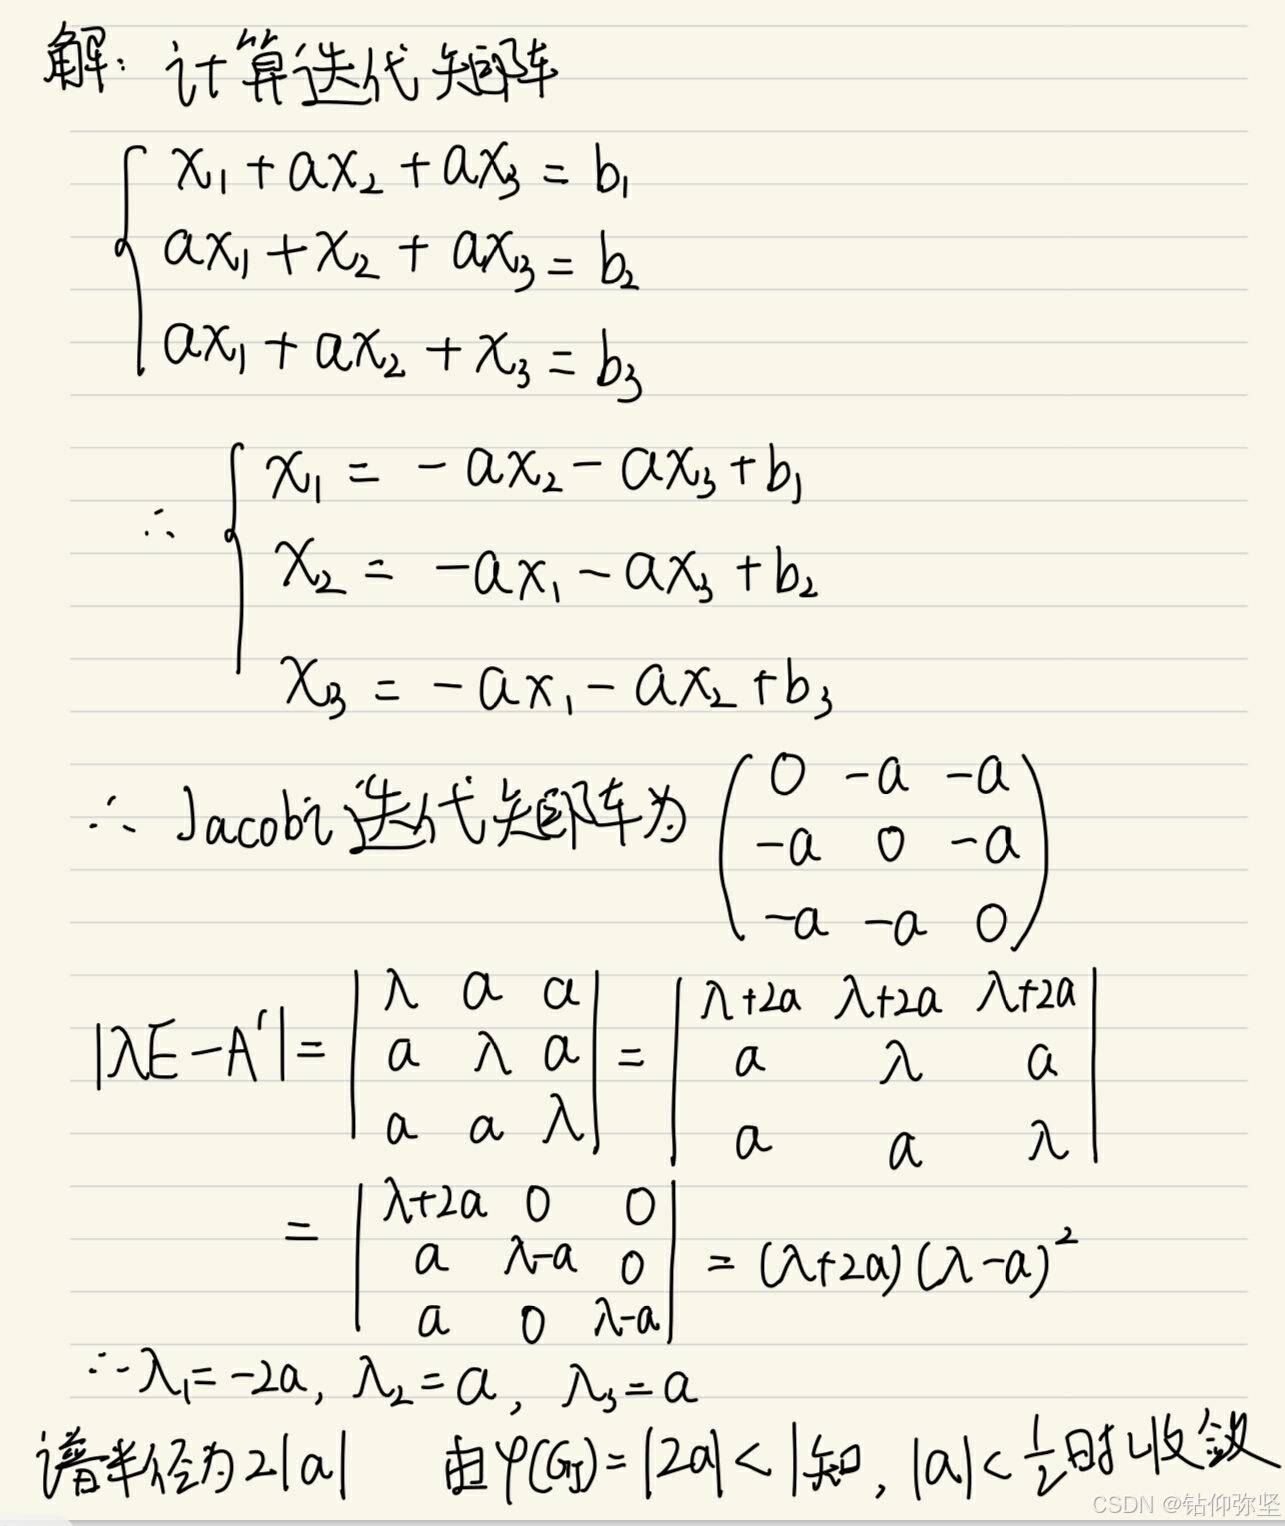 解: 计算迭代矩阵
x₁ + ax₂ + ax₃ = b₁
ax₁ + x₂ + ax₃ = b₂
ax₁ + ax₂ + x₃ = b₃
∴ x₁ = -ax₂ - ax₃ + b₁
x₂ = -ax₁ - ax₃ + b₂
x₃ = -ax₁ - ax₂ + b₃
∴ Jacobi 迭代矩阵为
0 -a -a
-a 0 -a
-a -a 0
|λE - A'| = | λ a a | = | λ+2a λ+2a λ+2a |
a λ a a λ a
a a λ a a λ
= | λ+2a 0 0 | = (λ+2a)(λ-a)²
a λ-a 0
a 0 λ-a
∴ λ₁ = -2a, λ₂ = a, λ₃ = a
谱半径为 2|a| 由 φ(G_J) = |2a| < 1 知, |a| < 1/2 时收敛
CSDN @钻仰弥坚